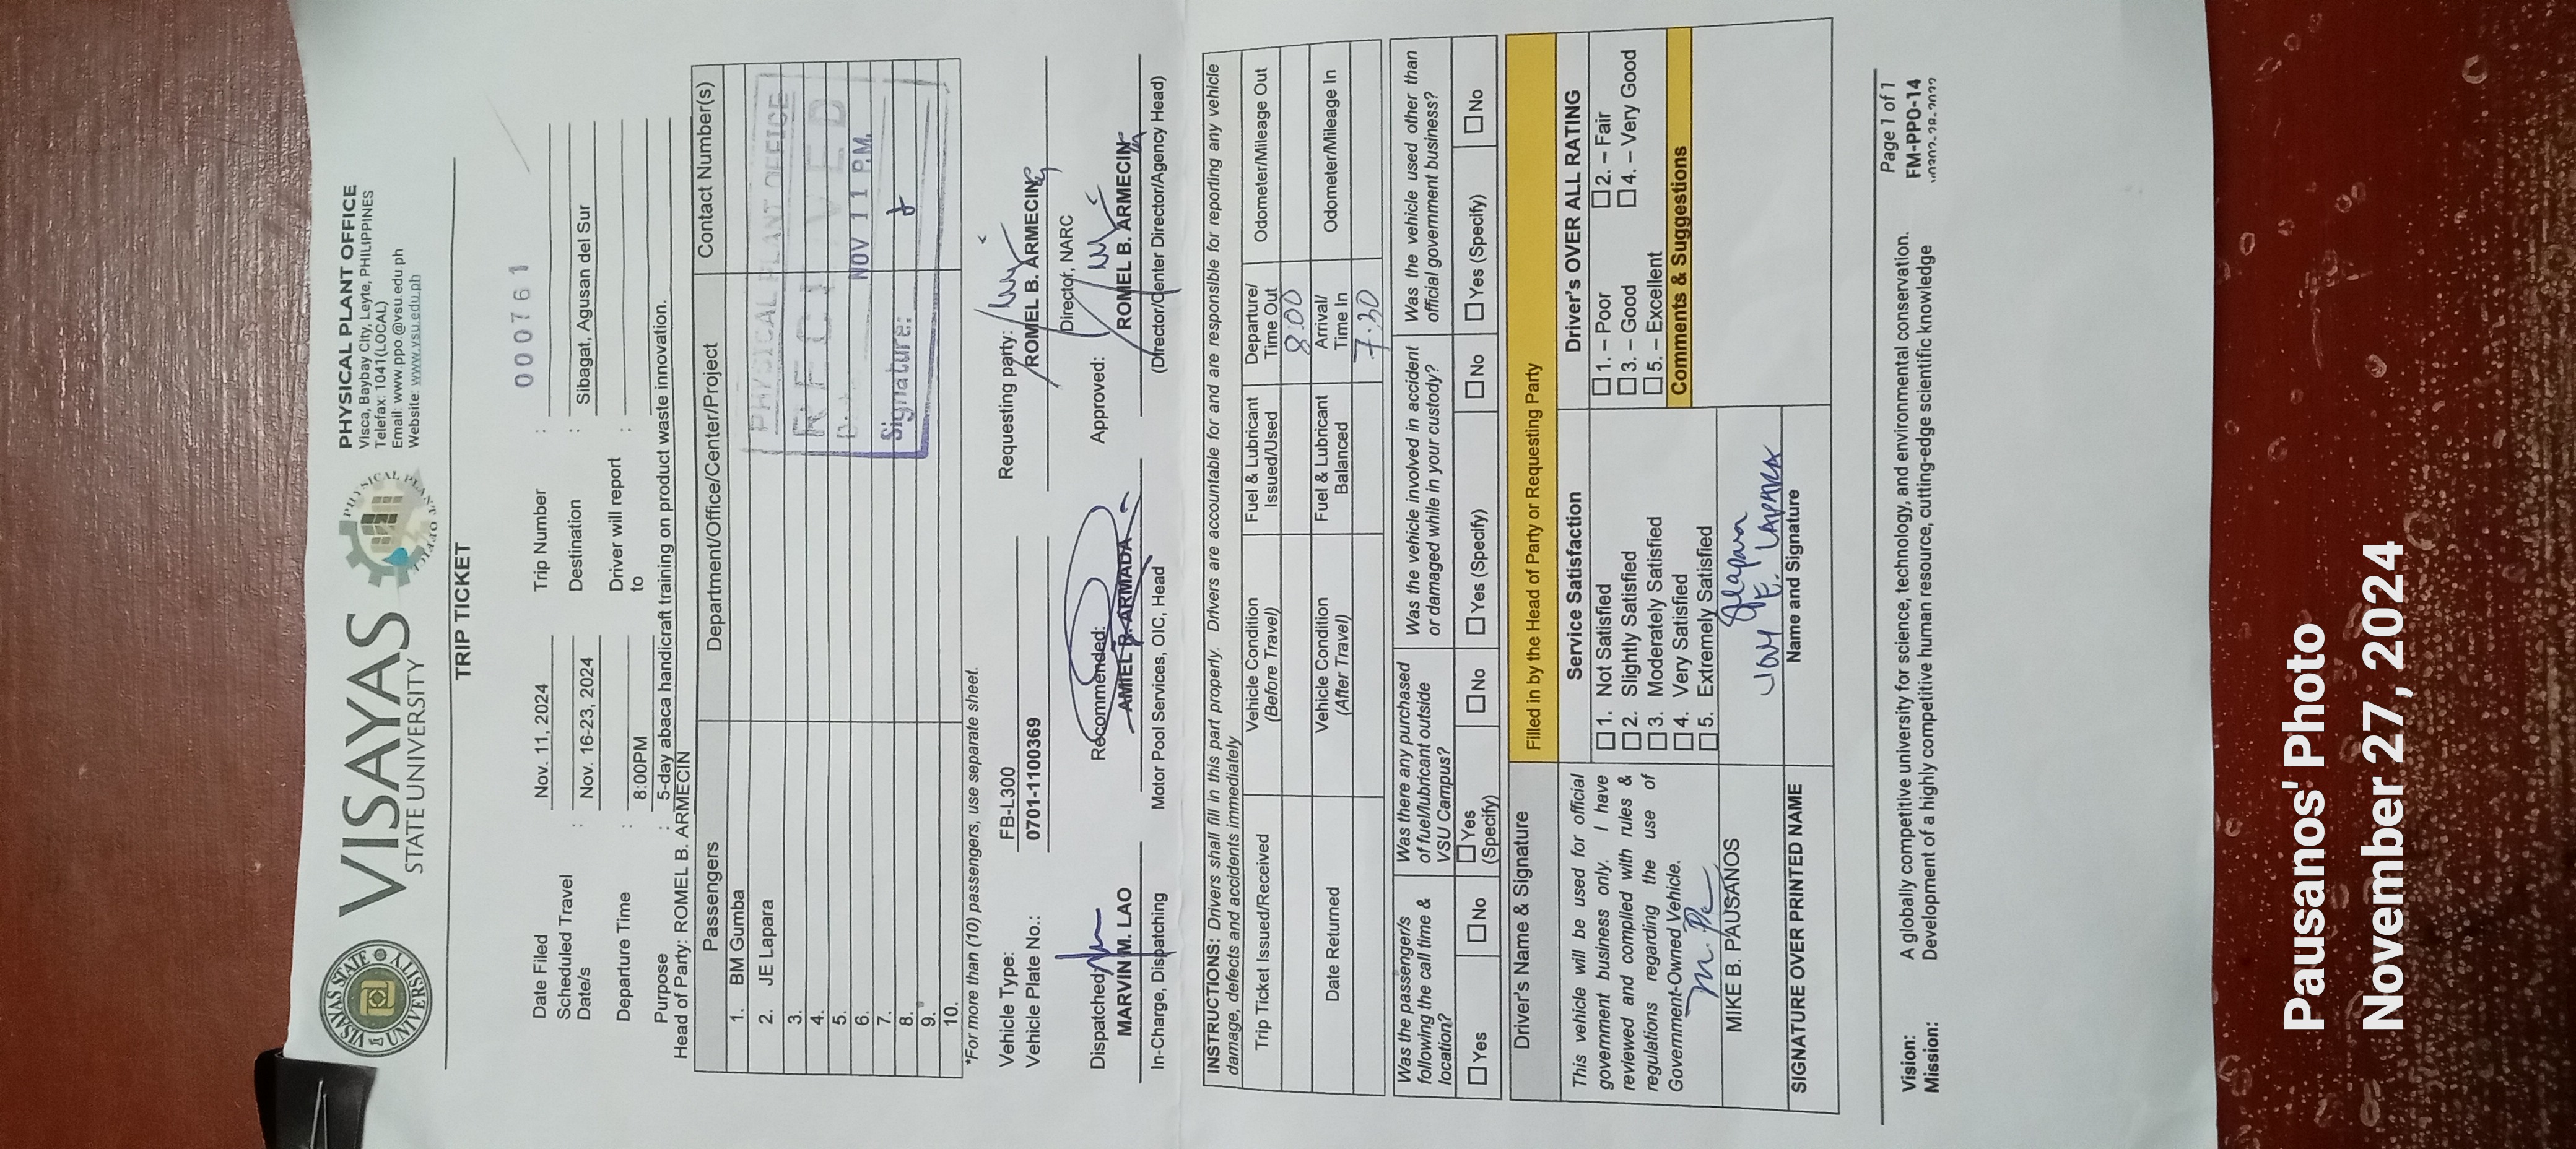 VISAYAS STATE UNIVERSITY
VISAYAS
STATE UNIVERSITY
PHYSICAL PLANT OFFICE
PHYSICAL PLANT OFFICE
Visca, Baybay City, Leyte, PHILIPPINES
Telefax: 1041(LOCAL)
Email: ww.ppo.@vsu.edu.ph
Website: www.vsu.edu.ph
TRIP TICKET
000761
Date Filed Nov. 11, 2024 Trip Number :
Scheduled Travel Date/s : Nov. 16-23, 2024 Destination : Sibagat, Agusan del Sur
Departure Time : 8:00PM Driver will report to :
Purpose : 5-day abaca handicraft training on product waste innovation.
Head of Party: ROMEL B. ARMECIN
Passengers Department/Office/Center/Project Contact Number(s)
1. BM Gumba
2. JE Lapara
3.
4.
5.
6.
7.
8.
9.
10.
PHYSICAL PLANT OFFICE
RECEIVED
NOV 11 P.M.
Signature:
*For more than (10) passengers, use separate sheet.
Vehicle Type: FB-L300
Vehicle Plate No.: 0701-1100369
Requesting party:
ROMEL B. ARMECIN
Director, NARC
Dispatched: Recommended: Approved:
MARVIN M. LAO AMIEL B. ARMADA ROMEL B. ARMECIN
In-Charge, Dispatching Motor Pool Services, OIC, Head (Director/Center Director/Agency Head)
INSTRUCTIONS: Drivers shall fill in this part properly. Drivers are accountable for and are responsible for reporting any vehicle
damage, defects and accidents immediately
Trip Ticket Issued/Received Vehicle Condition (Before Travel) Fuel & Lubricant Issued/Used Departure/ Time Out Odometer/Mileage Out
8:00
Date Returned Vehicle Condition (After Travel) Fuel & Lubricant Balanced Arrival/ Time In Odometer/Mileage In
7:30
Was the passenger/s following the call time & location? Was there any purchased of fuel/lubricant outside VSU Campus? Was the vehicle involved in accident or damaged while in your custody? Was the vehicle used other than official government business?
☐ Yes ☐ No ☐ Yes (Specify) ☐ No ☐ Yes (Specify) ☐ No ☐ Yes (Specify) ☐ No
Driver's Name & Signature Filled in by the Head of Party or Requesting Party
This vehicle will be used for official
government business only. I have
reviewed and complied with rules &
regulations regarding the use of
Government-Owned Vehicle.
MIKE B. PAUSANOS
SIGNATURE OVER PRINTED NAME
Service Satisfaction
☐ 1. Not Satisfied
☐ 2. Slightly Satisfied
☐ 3. Moderately Satisfied
☐ 4. Very Satisfied
☐ 5. Extremely Satisfied
JOY E. LAPARA
Name and Signature
Driver's OVER ALL RATING
☐ 1. – Poor ☐ 2. – Fair
☐ 3. – Good ☐ 4. – Very Good
☐ 5. – Excellent
Comments & Suggestions
Vision: A globally competitive university for science, technology, and environmental conservation.
Mission: Development of a highly competitive human resource, cutting-edge scientific knowledge
Page 1 of 1
FM-PPO-14
Pausanos' Photo
November 27, 2024